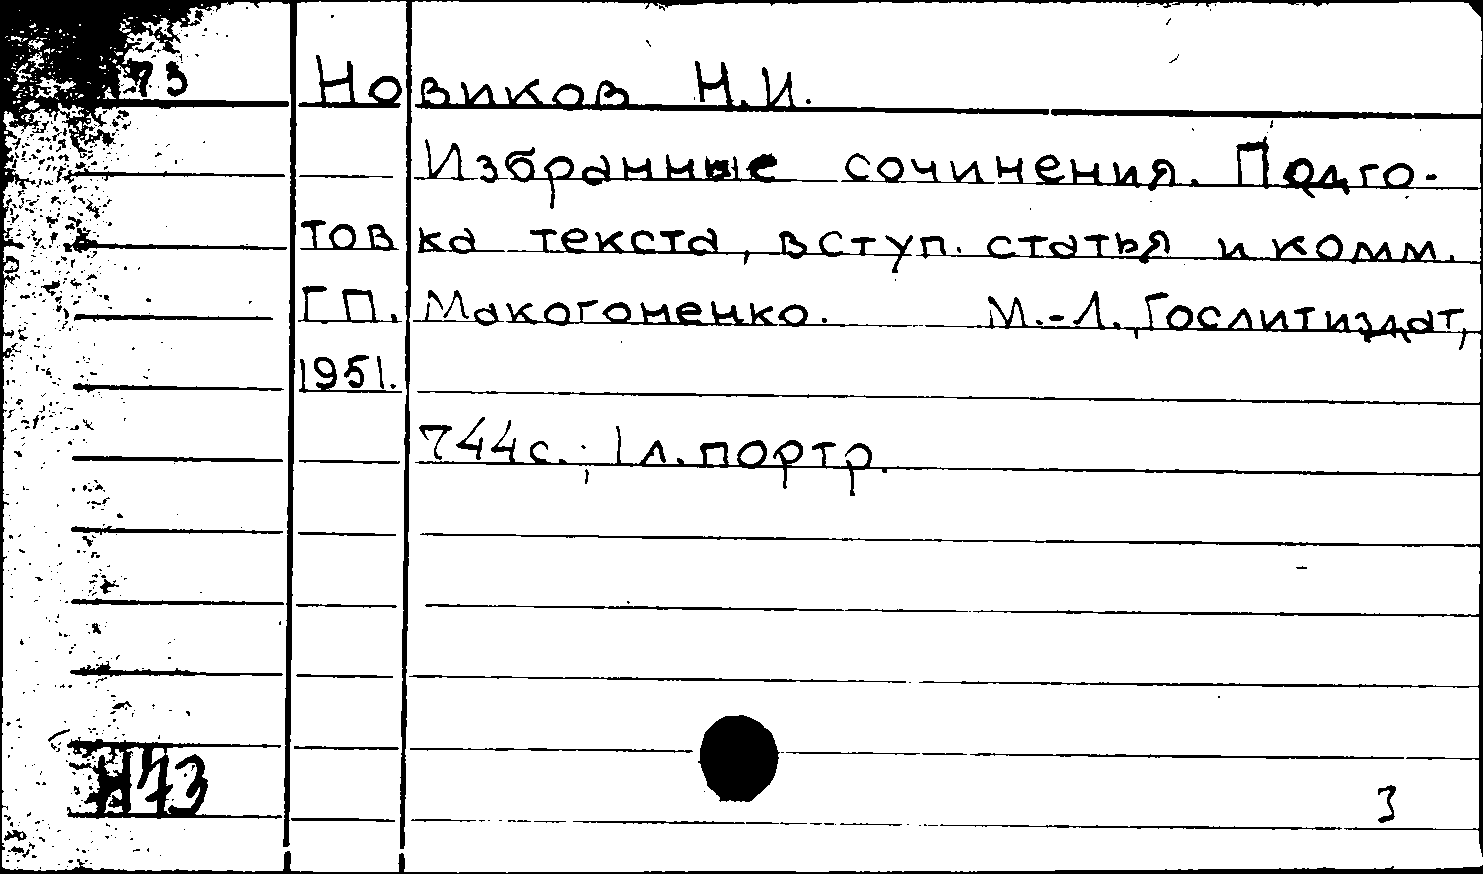 73 Новиков Н.И.
Избранные сочинения. Подго-
товка текста, вступ. статья и комм.
Г.П. Макогоненко. М.-Л., Гослитиздат,
1951.
744с.; 1 л. портр.
Н73
3